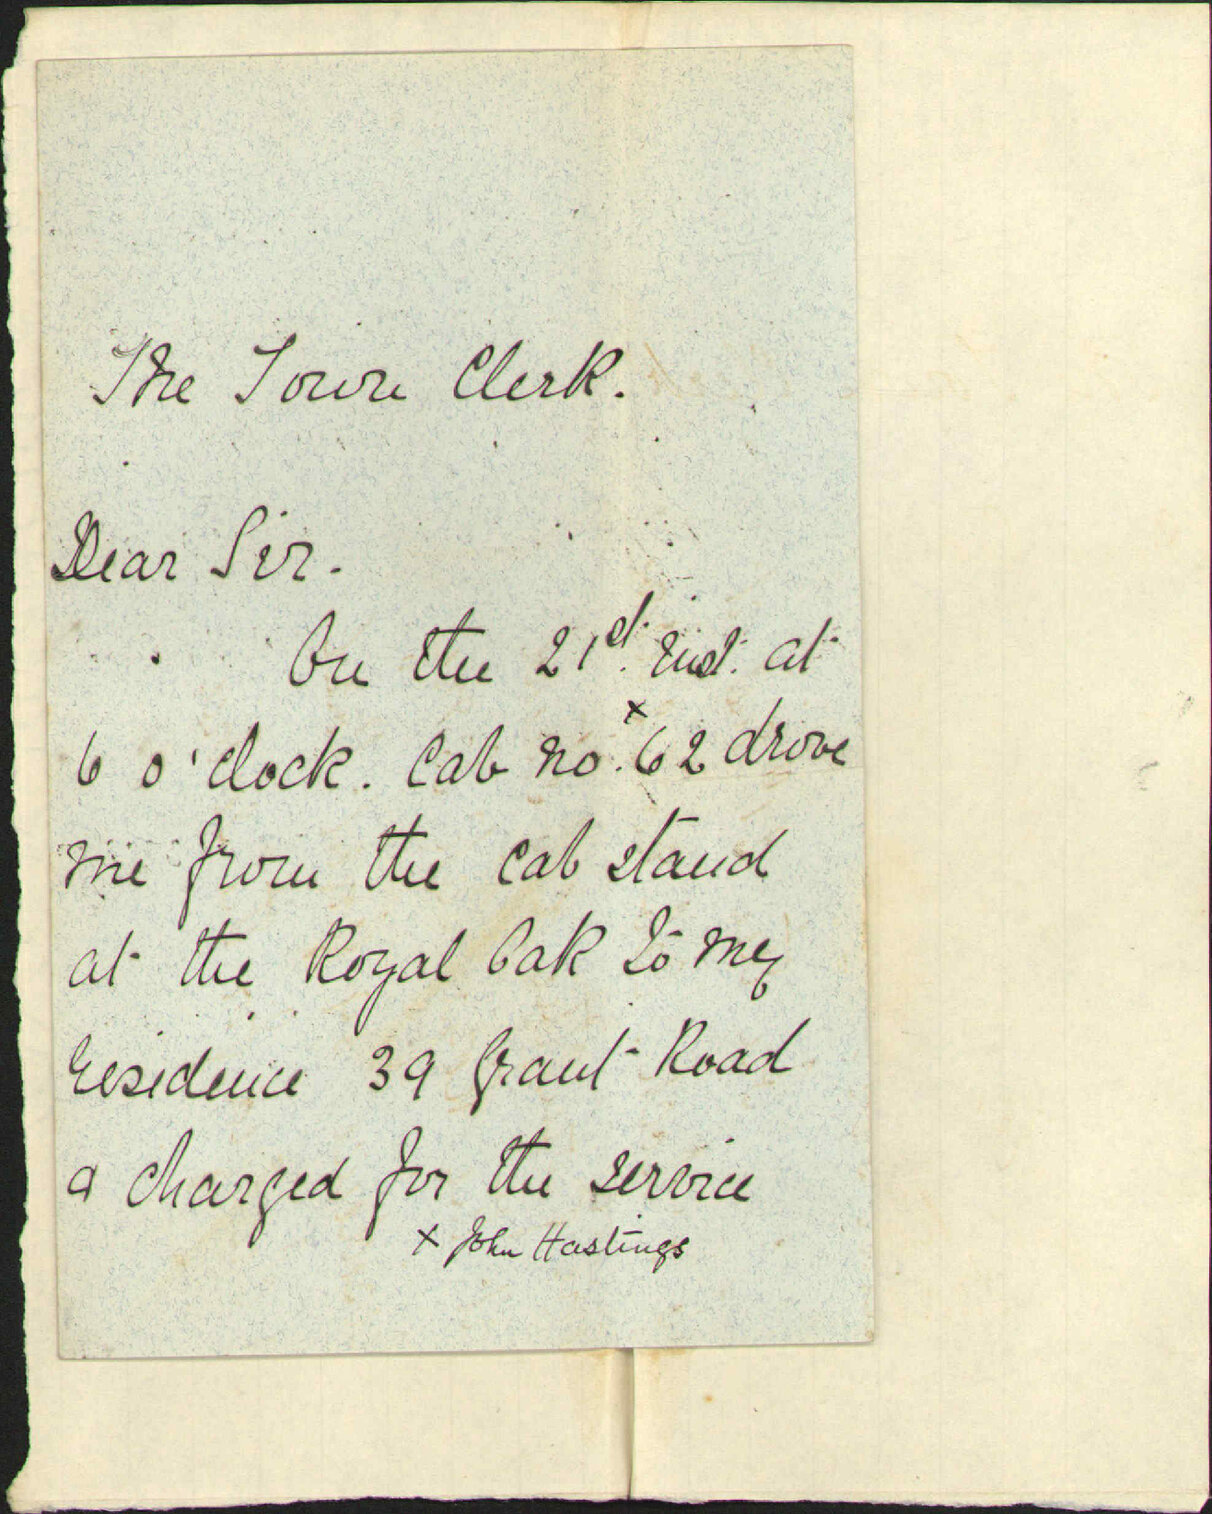 The Town Clerk.
Dear Sir.
On the 21st. inst. at
6 o'clock. Cab no. x 62 drove
me from the cab stand
at the Royal Oak to my
residence 39 Grant Road
& charged for the service
x John Hastings